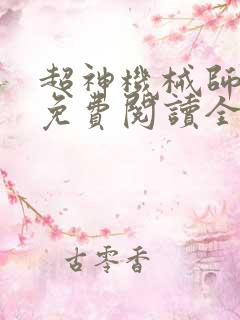 超神機械師
免費閱讀全
古零香